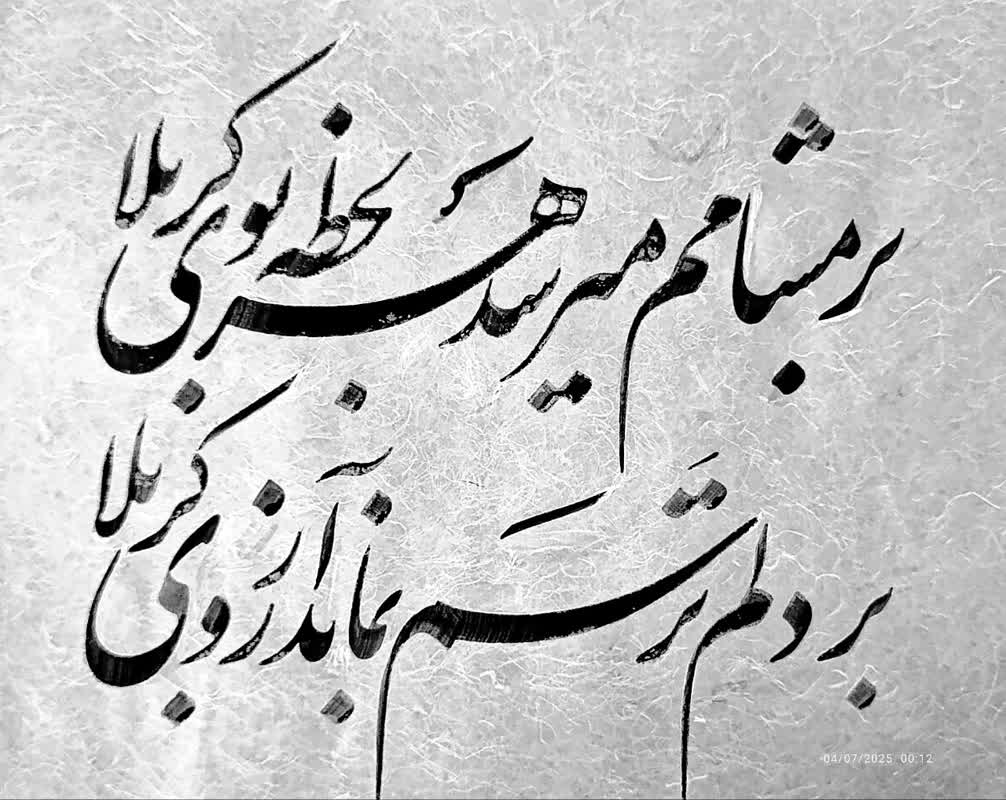 بر مشامم میرسد هر لحظه بوی کربلا
بر دلم ترسم بماند آرزوی کربلا
04/07/2025 00:12